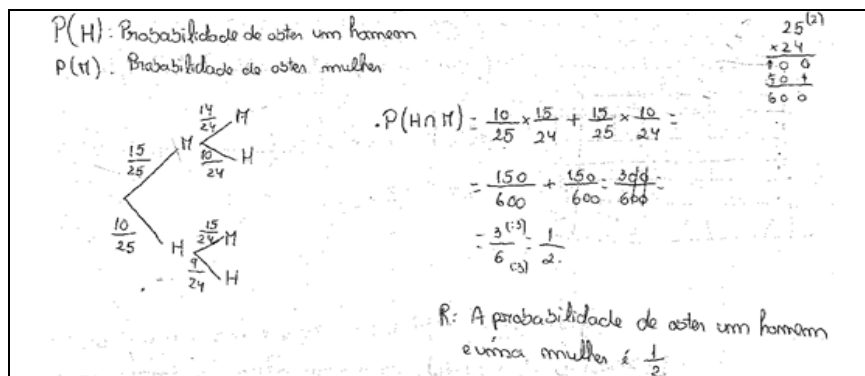 P(H): Probabilidade de obter um homem
P(M). Probabilidade de obter mulher
25 (2)
×24
100
50
600
14/24 M
15/25 M
10/24 H
10/25 H
15/24 M
9/24 H
.P(H∩M) = 10/25 × 15/24 + 15/25 × 10/24 =
= 150/600 + 150/600 = 300/600 =
= 3 (:3)/6 (:3) = 1/2.
R: A probabilidade de obter um homem
e uma mulher é 1/2